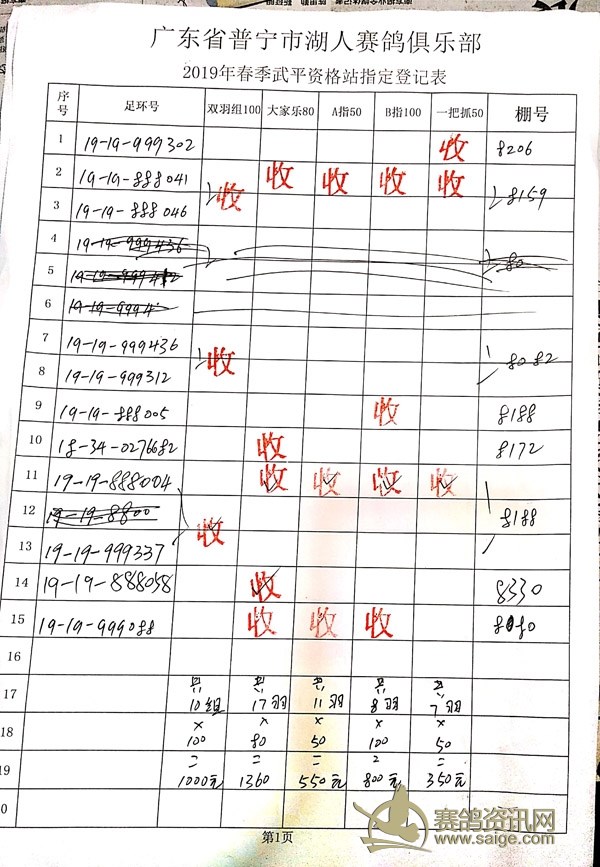 广东省普宁市湖人赛鸽俱乐部
2019年春季武平资格站指定登记表
序号 足环号 双羽组100 大家乐80 A指50 B指100 一把抓50 棚号
1 19-19-999302 收 8206
2 19-19-888041 收 收 收 收 收 8159
3 19-19-888046
4 19-19-999436
5
6
7 19-19-999436 收 8082
8 19-19-999312
9 19-19-888005 收 8188
10 18-34-0276682 收 8172
11 19-19-888004 收 收 收 收
12 收 8188
13 19-19-999337
14 19-19-888058 收 8330
15 19-19-999088 收 收 收
16
17 共10组 共17羽 共11羽 共8羽 共7羽
18 × × × × ×
100 80 50 100 50
19 = = = = =
1000元 1360 550元 800元 350元
第1页
赛鸽资讯网
www.saige.com